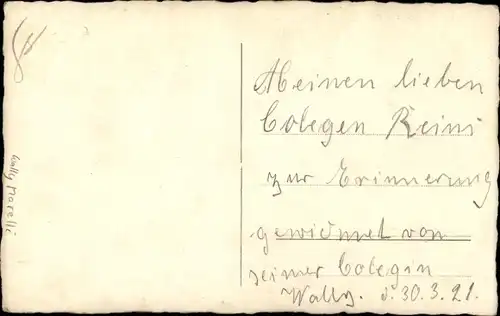 Meinen lieben
Colegen Reini
zur Erinnerung
gewidmet von
seiner Colegin
Wally. d. 30.3.21.
Wally Marelli